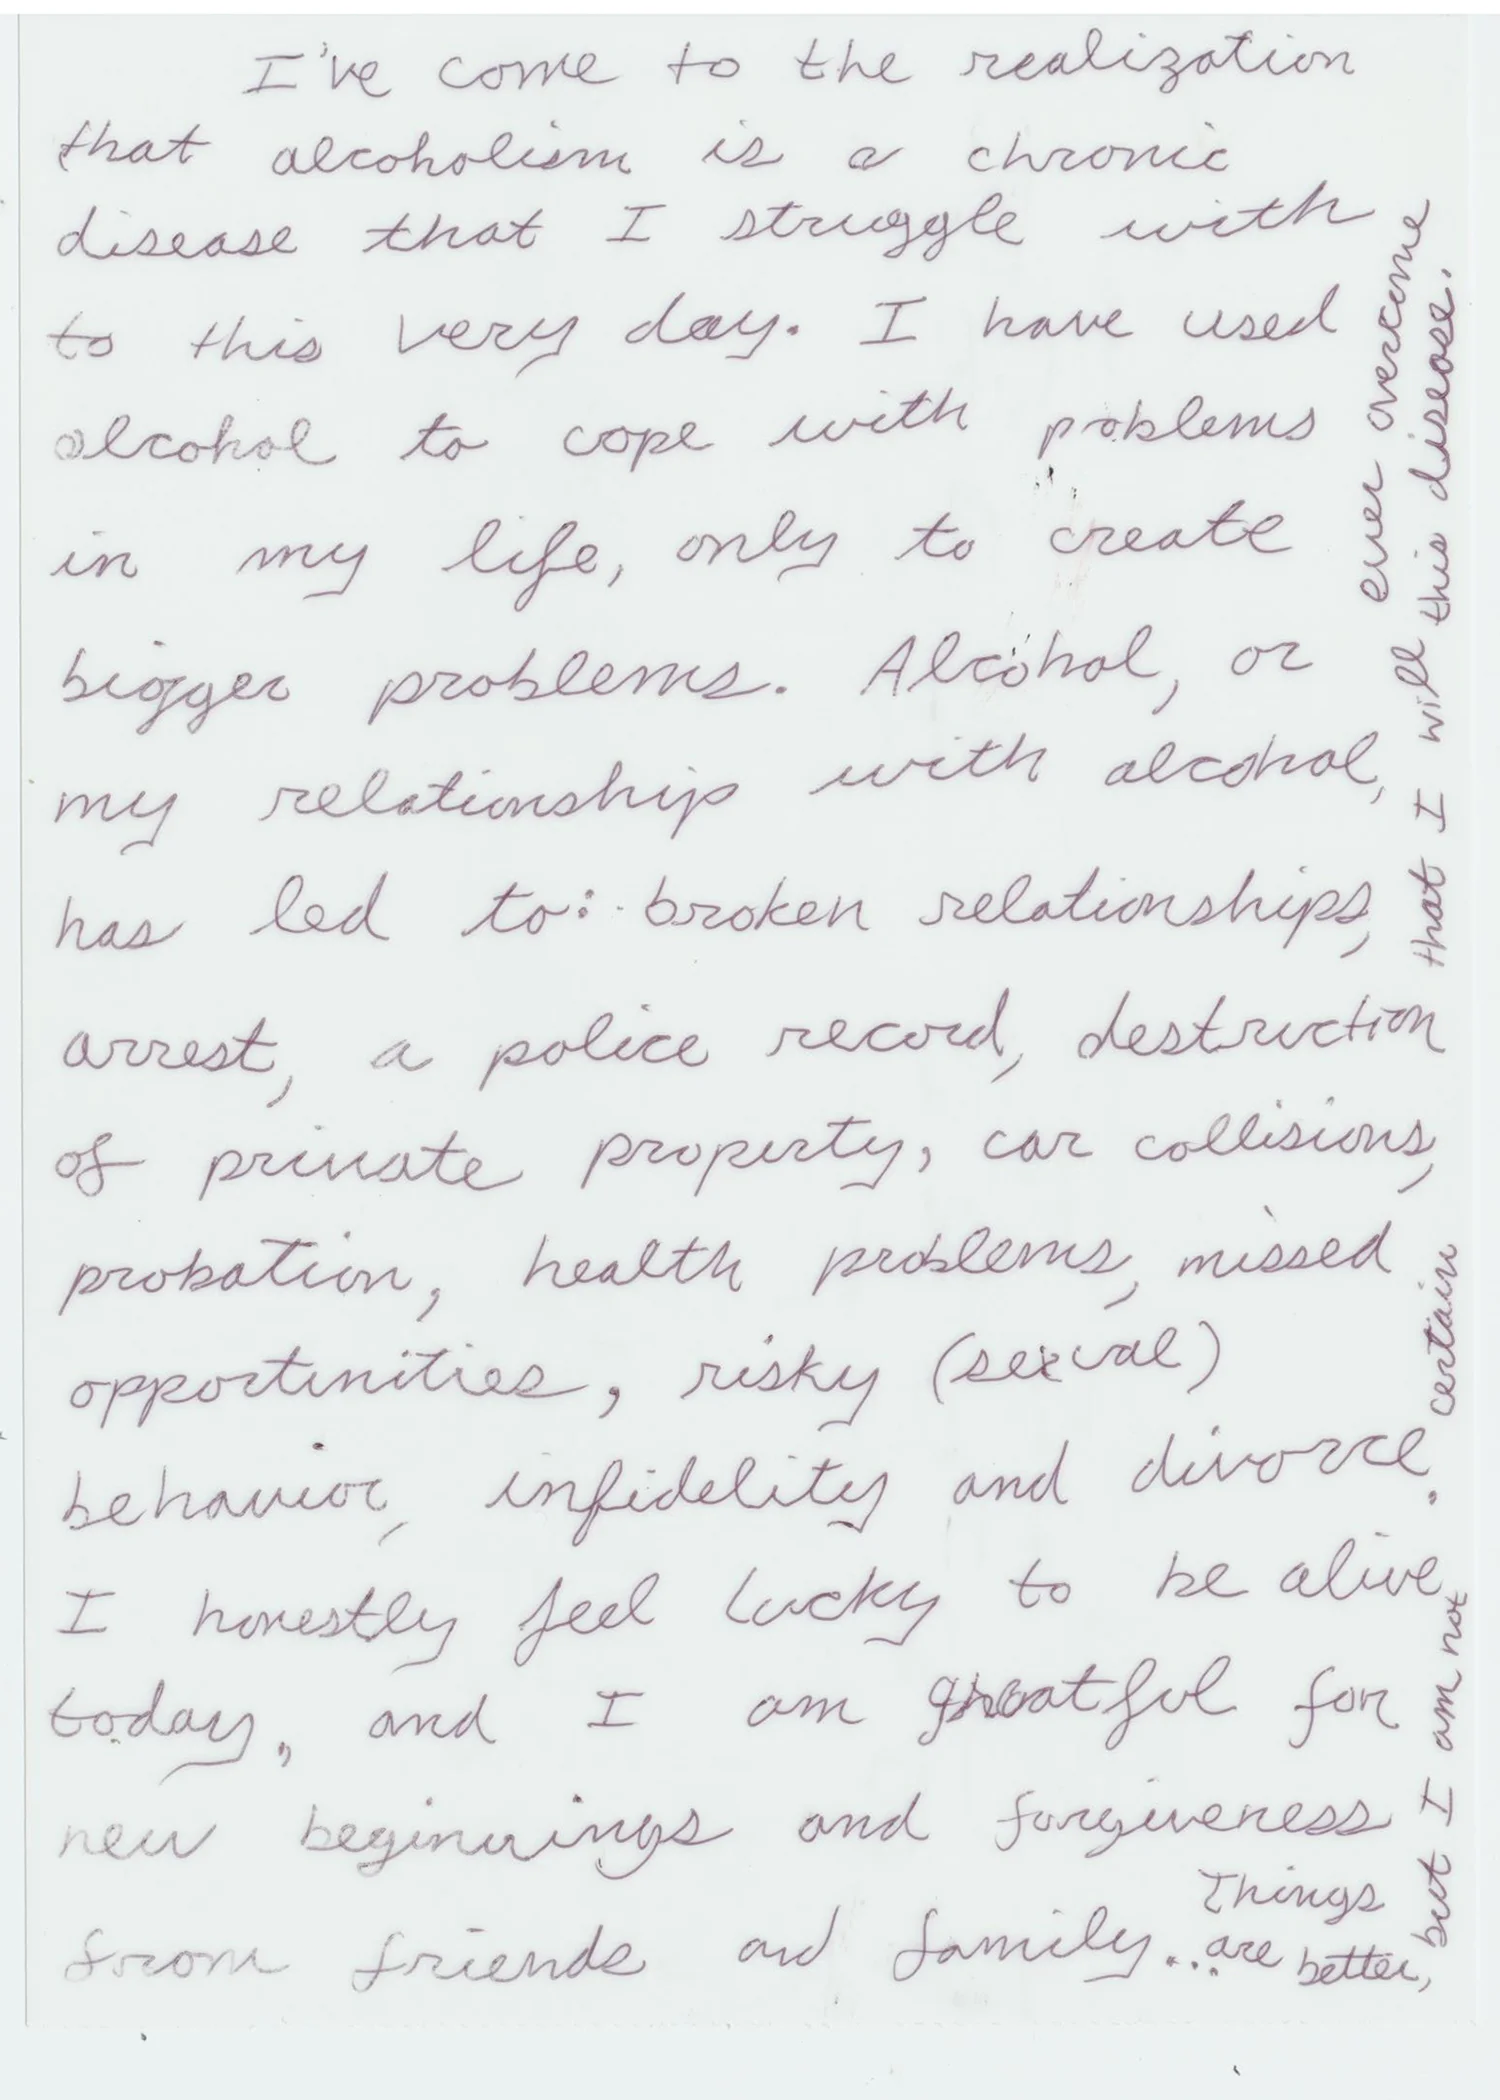 I've come to the realization
that alcoholism is a chronic
disease that I struggle with
to this very day. I have used
alcohol to cope with poblems
in my life, only to create
bigger problems. Alcohol, or
my relationship with alcohol,
has led to: broken relationships,
arrest, a police record, destruction
of private property, car collisions,
probation, health problems, missed
opportunities, risky (sexual)
behavior, infidelity and divorce.
I honestly feel lucky to be alive
today, and I am greatful for
new beginnings and forgiveness
from friends and family... Things
are better,
but I am not certain
that I will ever overcome
this disease.